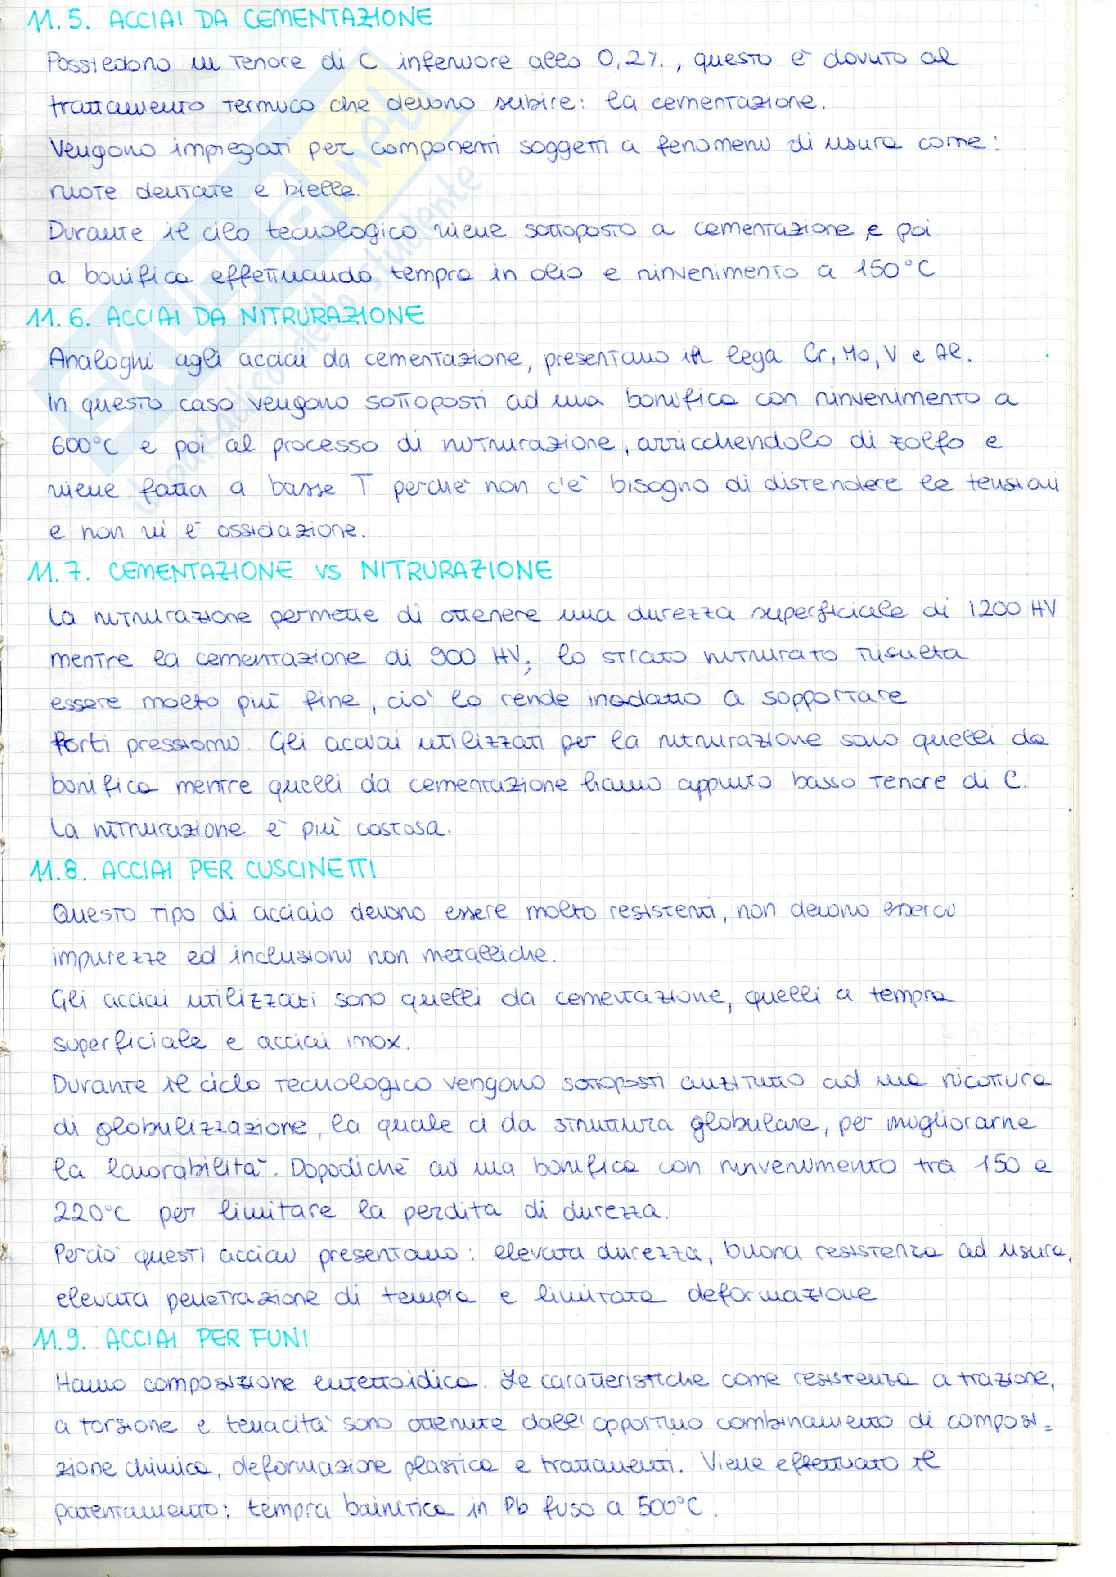 11.5. ACCIAI DA CEMENTAZIONE
Possiedono un tenore di C inferiore allo 0,2%, questo è dovuto al
trattamento termico che devono subire: la cementazione.
Vengono impiegati per componenti soggetti a fenomeni di usura come:
ruote dentate e bielle.
Durante il cilo tecnologico viene sottoposto a cementazione e poi
a bonifica effettuando tempra in olio e rinvenimento a 150°C
11.6. ACCIAI DA NITRURAZIONE
Analoghi agli acciai da cementazione, presentano in lega Cr, Mo, V e Al.
In questo caso vengono sottoposti ad una bonifica con rinvenimento a
600°C e poi al processo di nitrurazione, arricchendolo di zolfo e
viene fatta a basse T perchè non c'è bisogno di distendere le tensioni
e non vi è ossidazione.
11.7. CEMENTAZIONE VS NITRURAZIONE
La nitrurazione permette di ottenere una durezza superficiale di 1200 HV
mentre la cementazione di 900 HV; lo strato nitrurato risulta
essere molto più fine, ciò lo rende inadatto a sopportare
forti pressioni. Gli acciai utilizzati per la nitrurazione sono quelli da
bonifica mentre quelli da cementazione hanno appunto basso tenore di C.
La nitrurazione è più costosa.
11.8. ACCIAI PER CUSCINETTI
Questo tipo di acciaio devono essere molto resistenti, non devono esserci
impurezze ed inclusioni non metalliche.
Gli acciai utilizzati sono quelli da cementazione, quelli a tempra
superficiale e acciai inox.
Durante il ciclo tecnologico vengono sottoposti anzitutto ad una ricottura
di globulizzazione, la quale ci da struttura globulare, per migliorarne
la lavorabilità. Dopodichè ad una bonifica con rinvenimento tra 150 e
220°C per limitare la perdita di durezza.
Perciò questi acciai presentano: elevata durezza, buona resistenza ad usura,
elevata penetrazione di tempra e limitata deformazione
11.9. ACCIAI PER FUNI
Hanno composizione eutettoidica. Le caratteristiche come resistenza a trazione,
a torsione e tenacità sono ottenute dall'opportuno combinamento di composi=
zione chimica, deformazione plastica e trattamenti. Viene effettuato il
patentamento: tempra bainitica in Pb fuso a 500°C.